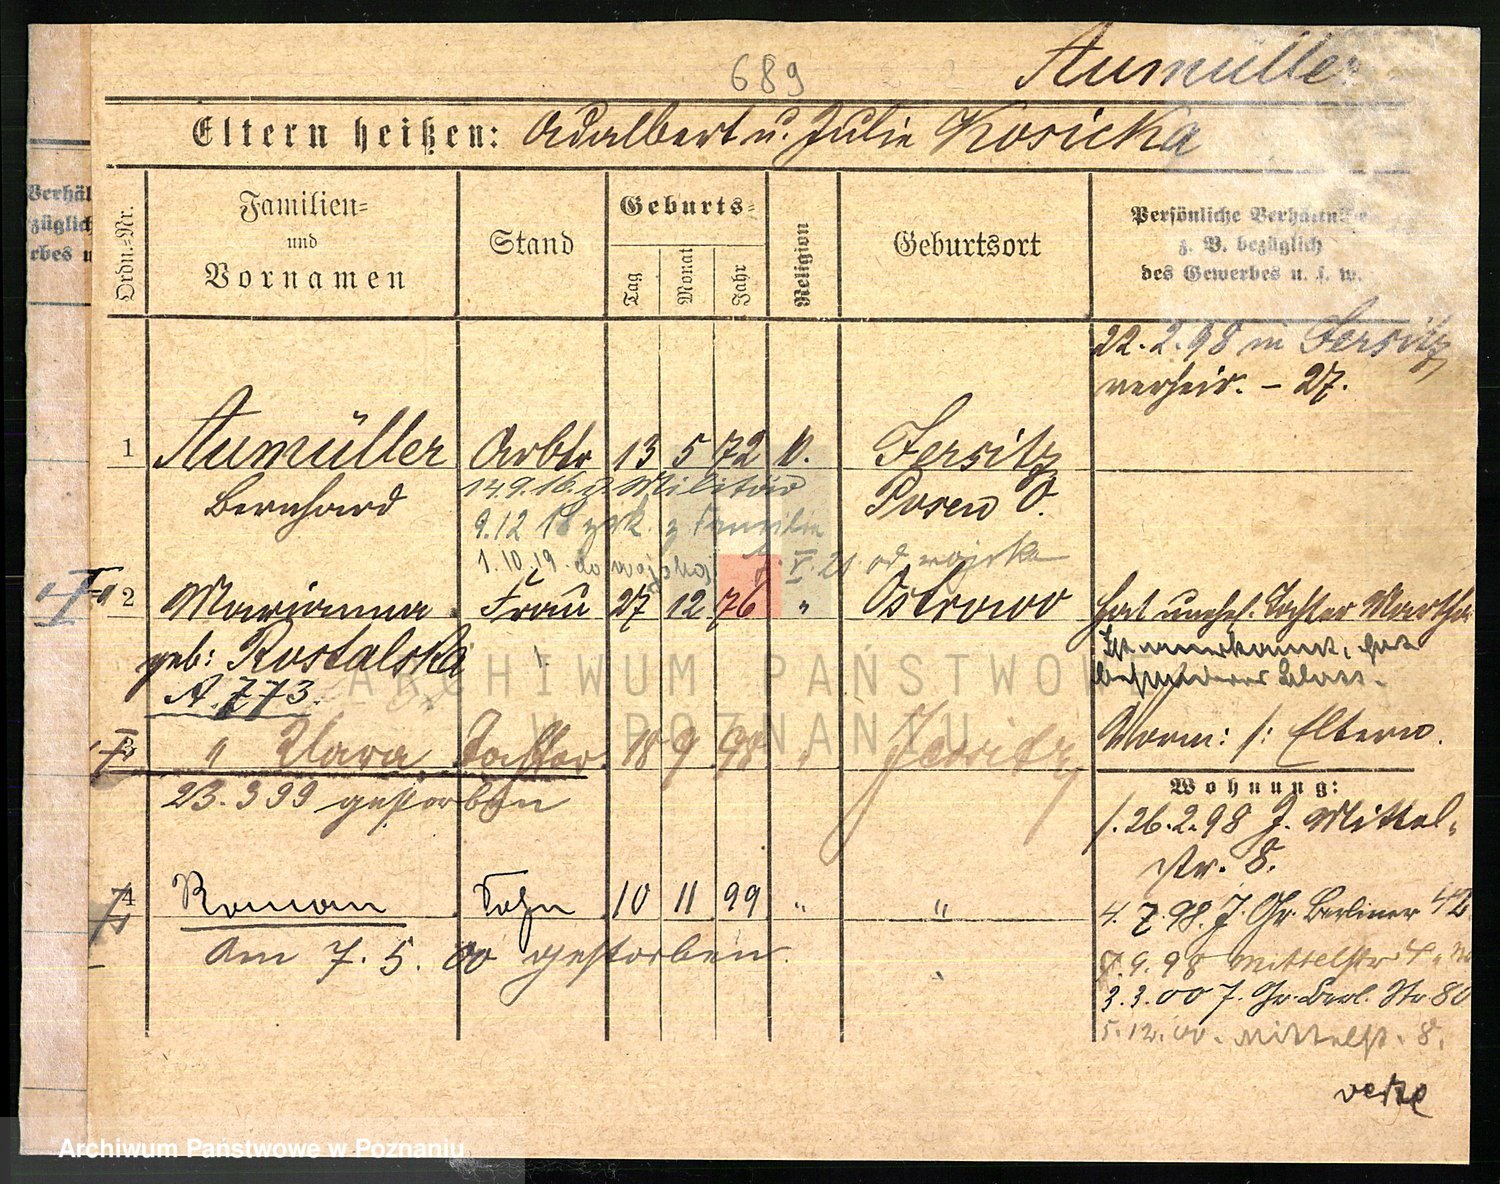 689
Aumüller
Eltern heißen: Adalbert u. Julie Kosicka
Verhäl
züglich
rbes u
Ordn.=Nr.
Familien=
und
Vornamen
Stand
Geburts=
Tag
Monat
Jahr
Religion
Geburtsort
Persönliche Verhältnisse
z. B. bezüglich
des Gewerbes u. s. w.
22.2.98 in Jersitz
verheir. – 27.
1 Aumüller Arbtr 13 5 72 k. Jersitz
Bernhard Posen O.
14.9.16. z. Militär
9.12 18 zrk. z Familie
1.10.19. do wojska V. 21 od wojska
2 Marianna Frau 27 12 76 " Ostrowo
geb: Rostalska
A. 773.
hat unehel. Tochter Martha
Ist anerkannt, hat
besonderes Blatt.
Vorm: s: Eltern.
3 " Klara Tochter 18 9 98 " Jersitz
23.3 99 gestorben
4 Roman Sohn 10 11 99 " "
Am 7. 5. 00 gestorben.
Wohnung:
1. 26.2.98 J. Mittel-
str. 8.
4. 7.98. J. Gr. Berliner 42
8.9.98 Mittelstr 4
3.3.00 J. Gr. Berl. Str 80
5.12.00. Mittelst. 8.
verte
ARCHIWUM PAŃSTWOWE
W POZNANIU
Archiwum Państwowe w Poznaniu